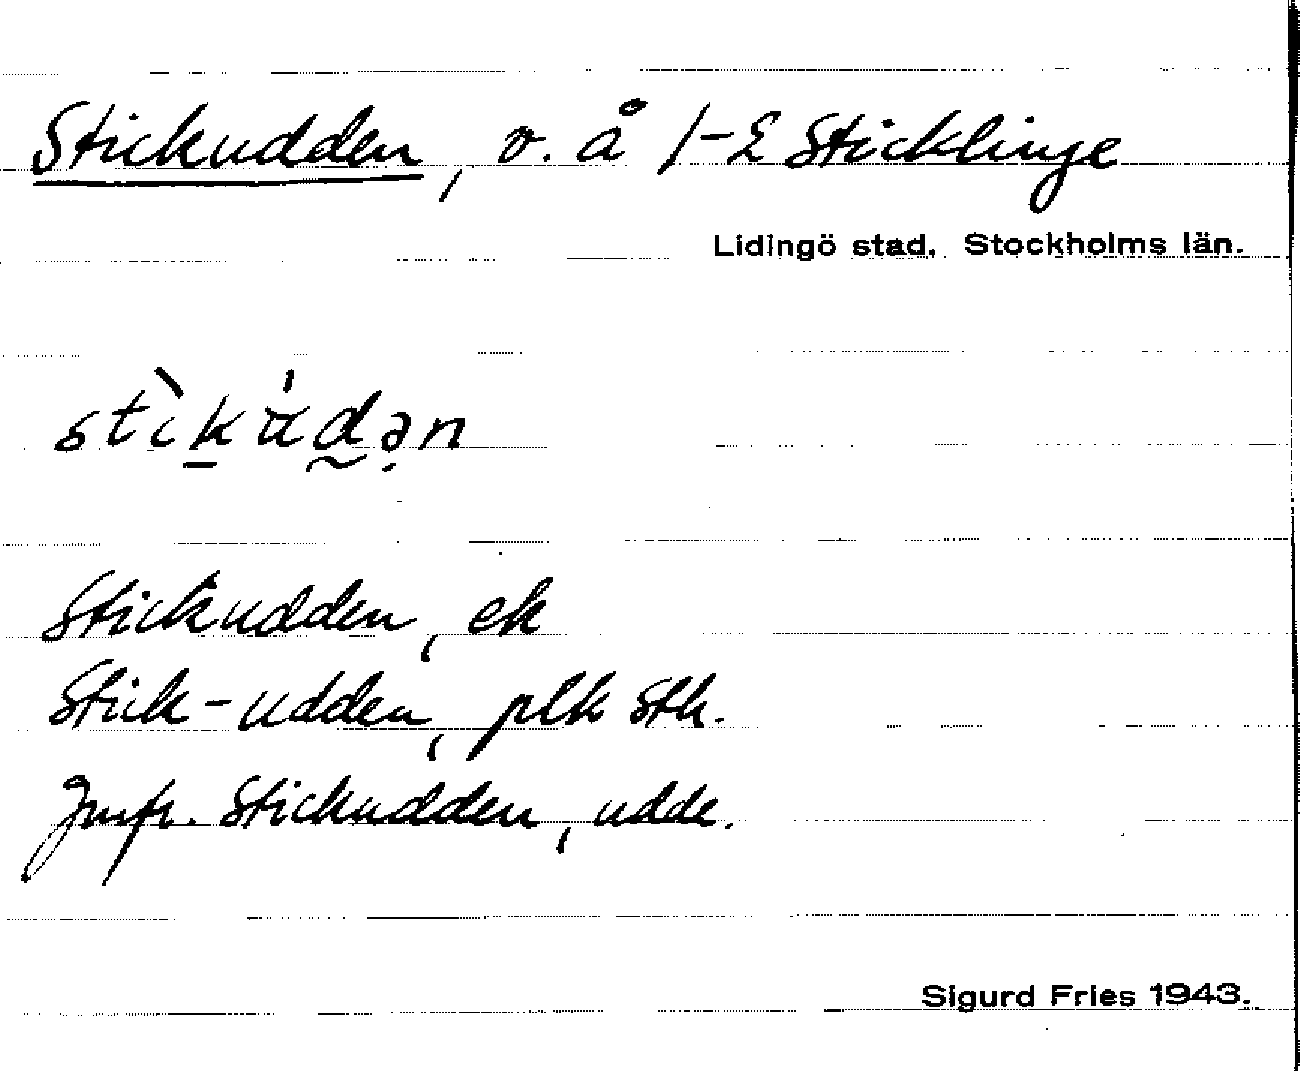 Stickudden, v. å 1-2 Sticklinge
Lidingö stad. Stockholms län.
stìkúdən
Stickudden, ek
Stick-udden, plk Sth.
Jmfr. Stickudden, udde.
Sigurd Fries 1943.